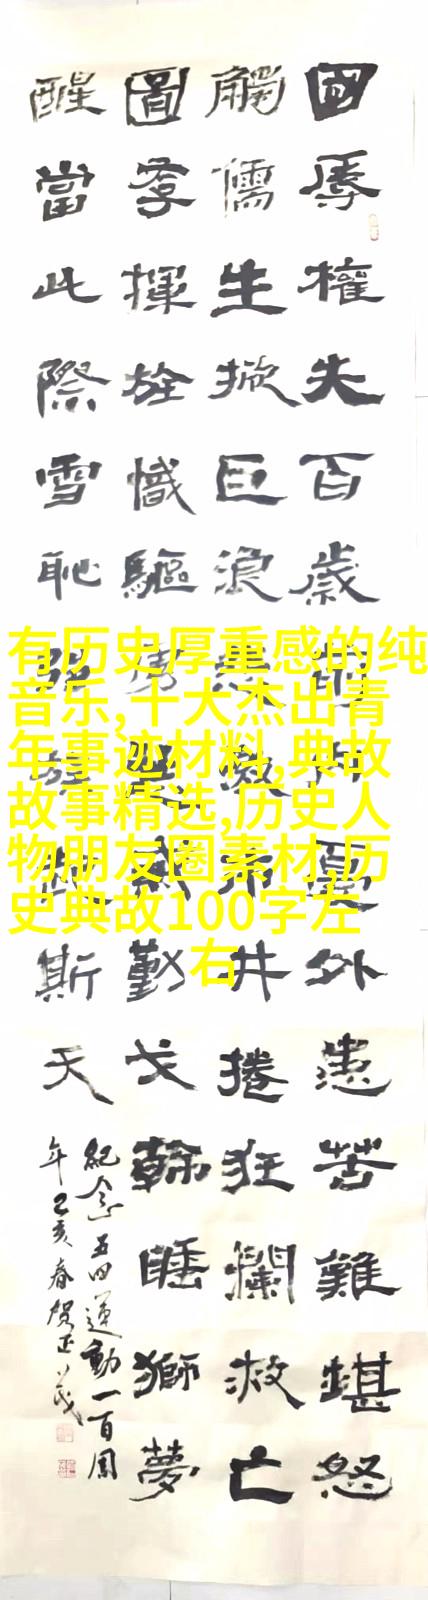 國辱權失百歲前內憂外患苦難堪怒
觸儒生掀巨浪市井捲狂瀾救亡
圖存揮旌幟驅虜武勤戈斡睡獅夢
醒當此際雪恥強斯天
紀念五四運動一百周
年己亥春賀正
有历史厚重感的纯
音乐,十大杰出青
年事迹材料,典故
故事精选,历史人
物朋友圈素材,历
史典故100字左
右